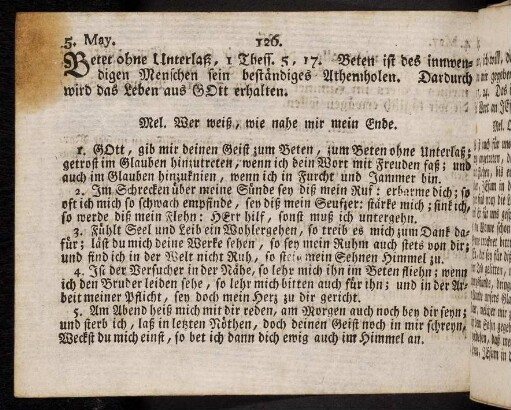 5. May. 126.
Betet ohne Unterlaß, 1 Thess. 5, 17. Beten ist des inwen-
digen Menschen sein beständiges Athemholen. Dardurch
wird das Leben aus GOtt erhalten.
Mel. Wer weiß, wie nahe mir mein Ende.
1. GOtt, gib mir deinen Geist zum Beten, zum Beten ohne Unterlaß;
getrost im Glauben hinzutreten, wenn ich dein Wort mit Freuden faß; und
auch im Glauben hinzuknien, wenn ich in Furcht und Jammer bin.
2. Im Schrecken über meine Sünde sey diß mein Ruf: erbarme dich; so
oft ich mich so schwach empfinde, sey diß mein Seufzer: stärke mich; sink ich,
so werde diß mein Flehn: HErr hilf, sonst muß ich untergehn.
3. Fühlt Seel und Leib ein Wohlergehen, so treib es mich zum Dank da-
für; läst du mich deine Werke sehen, so sey mein Ruhm auch stets von dir;
und find ich in der Welt nicht Ruh, so steig mein Sehnen Himmel zu.
4. Ist der Versucher in der Nähe, so lehr mich ihn im Beten fliehn; wenn
ich den Bruder leiden sehe, so lehr mich bitten auch für ihn; und in der Ar-
beit meiner Pflicht, sey doch mein Herz zu dir gericht.
5. Am Abend heiß mich mit dir reden, am Morgen auch noch bey dir seyn;
und sterb ich, laß in letzten Nöthen, doch deinen Geist noch in mir schreyn,
Weckst du mich einst, so bet ich dann dich ewig auch im Himmel an.